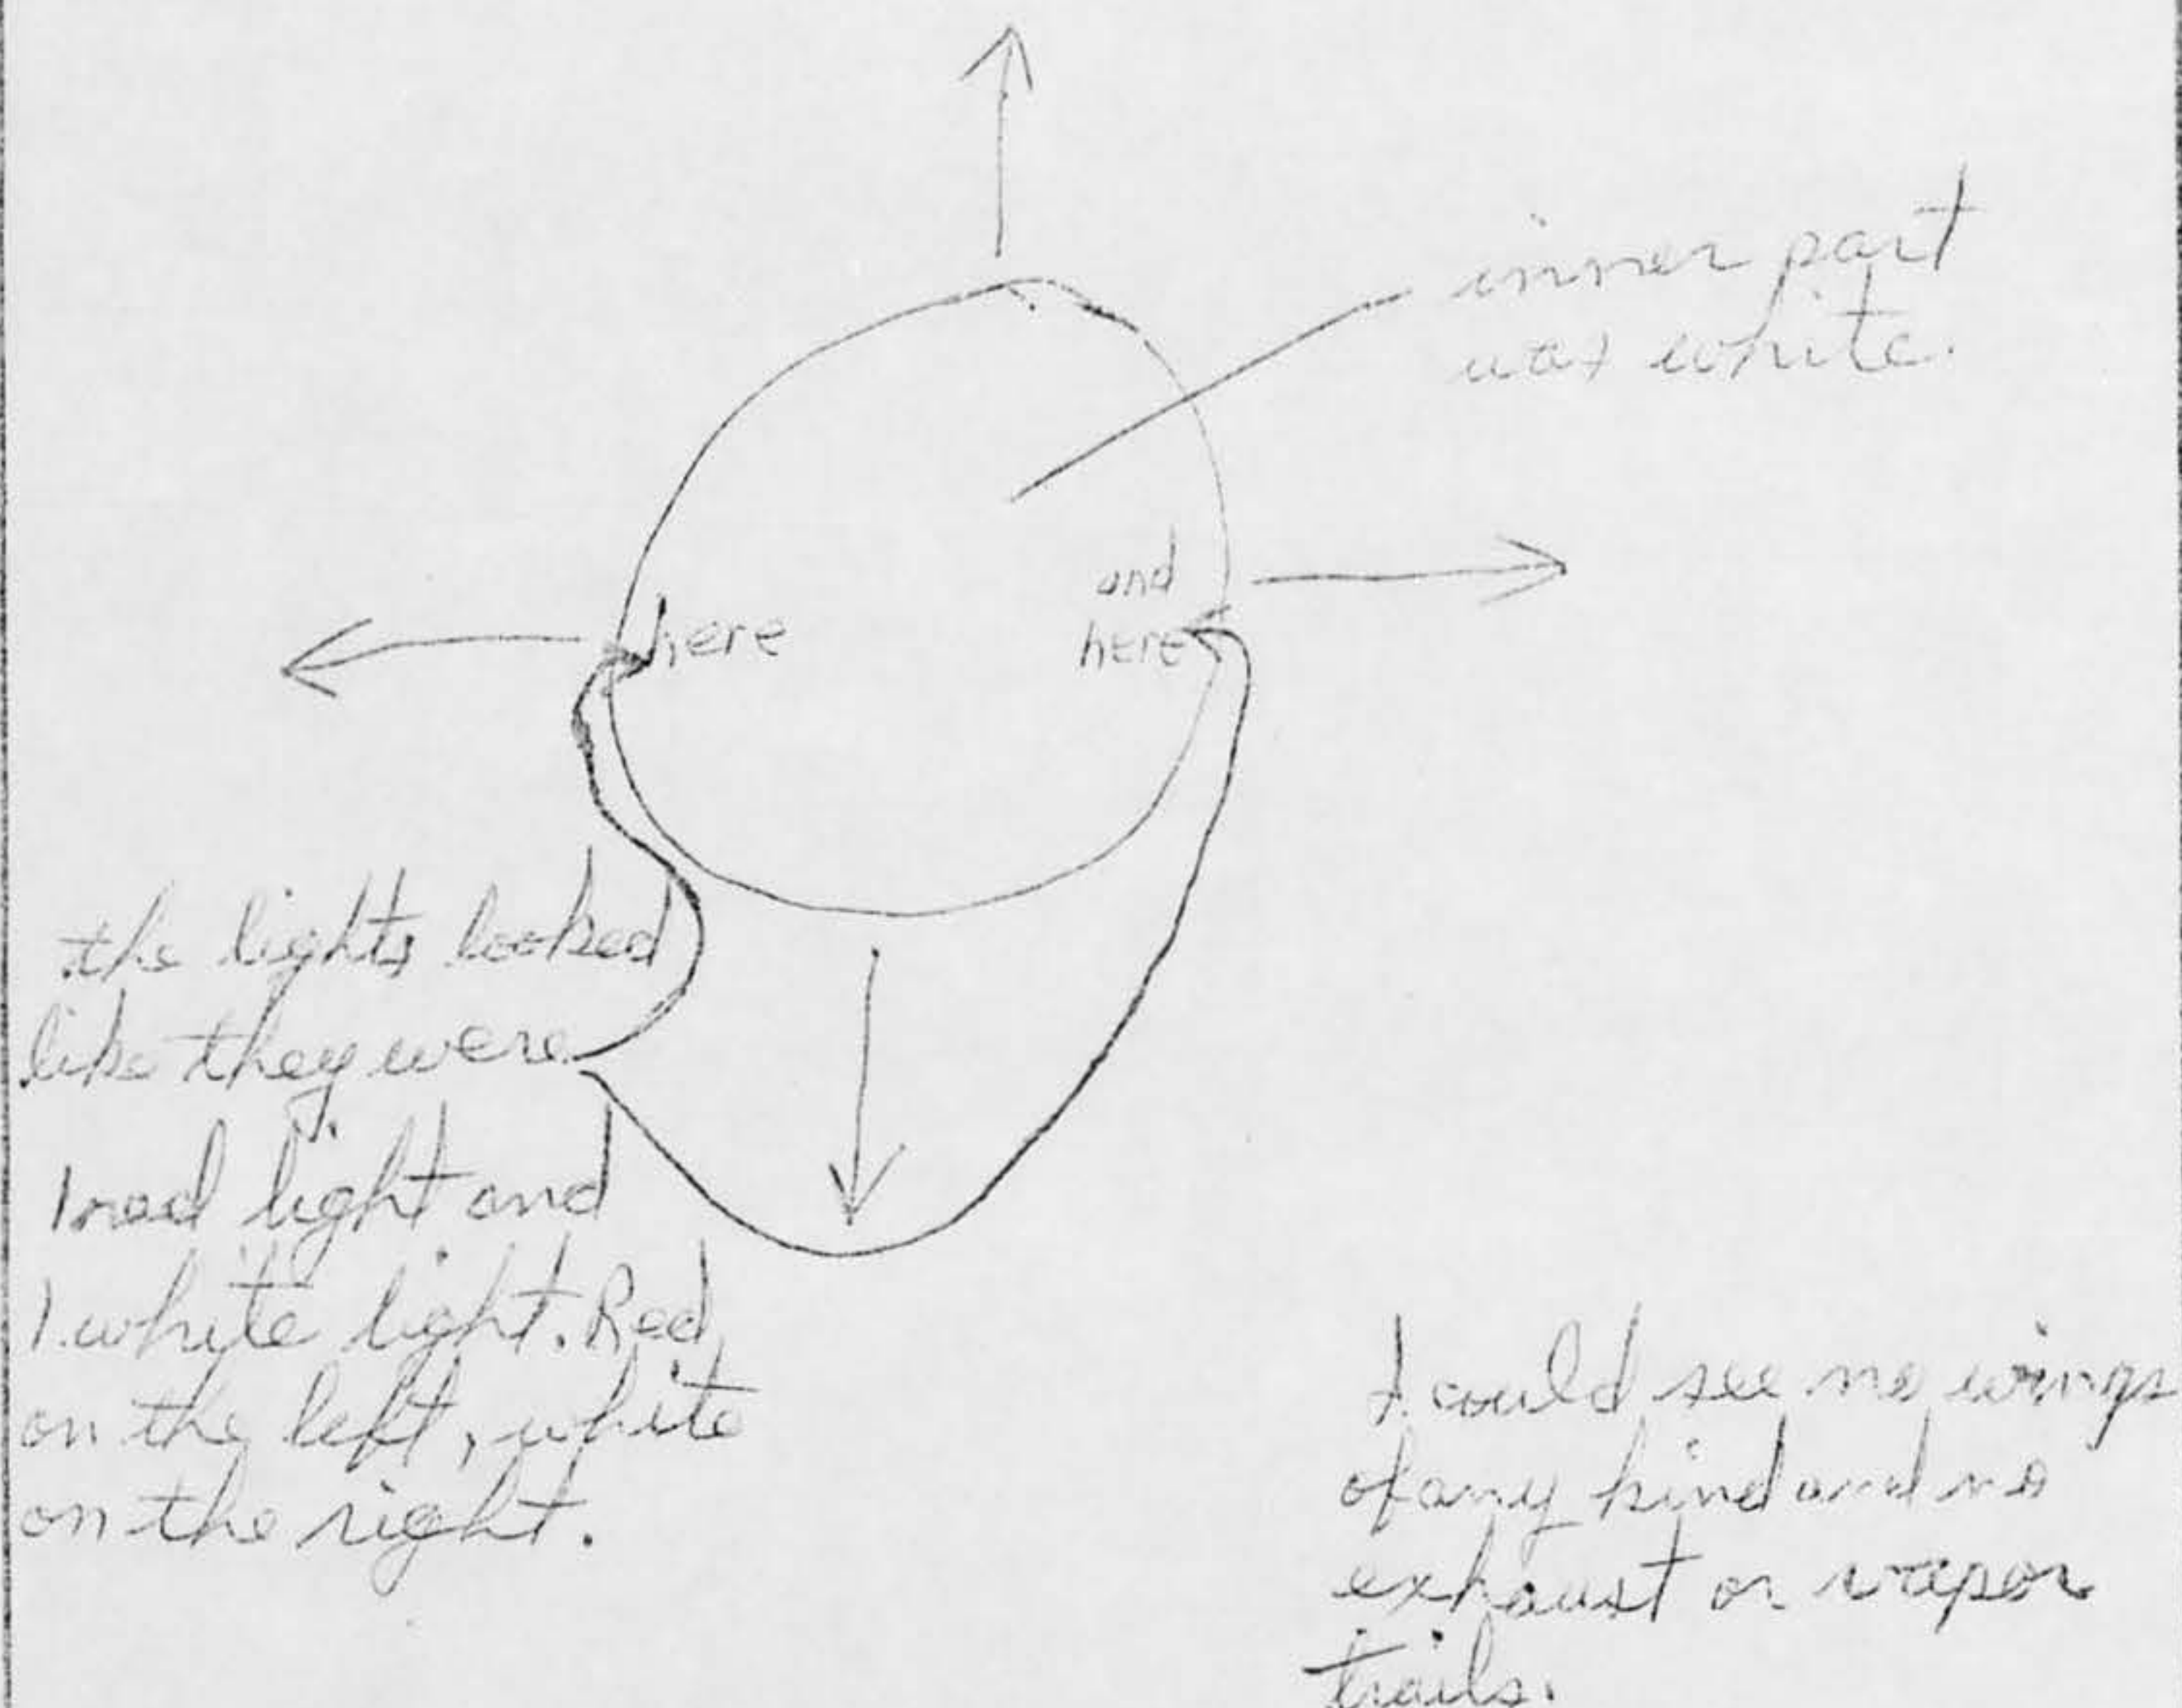 inner part
was white.
and
here
here
the lights looked
like they were
1 red light and
1 white light. Red
on the left, white
on the right.
I could see no wings
of any kind and no
exhaust or vapor
trails.